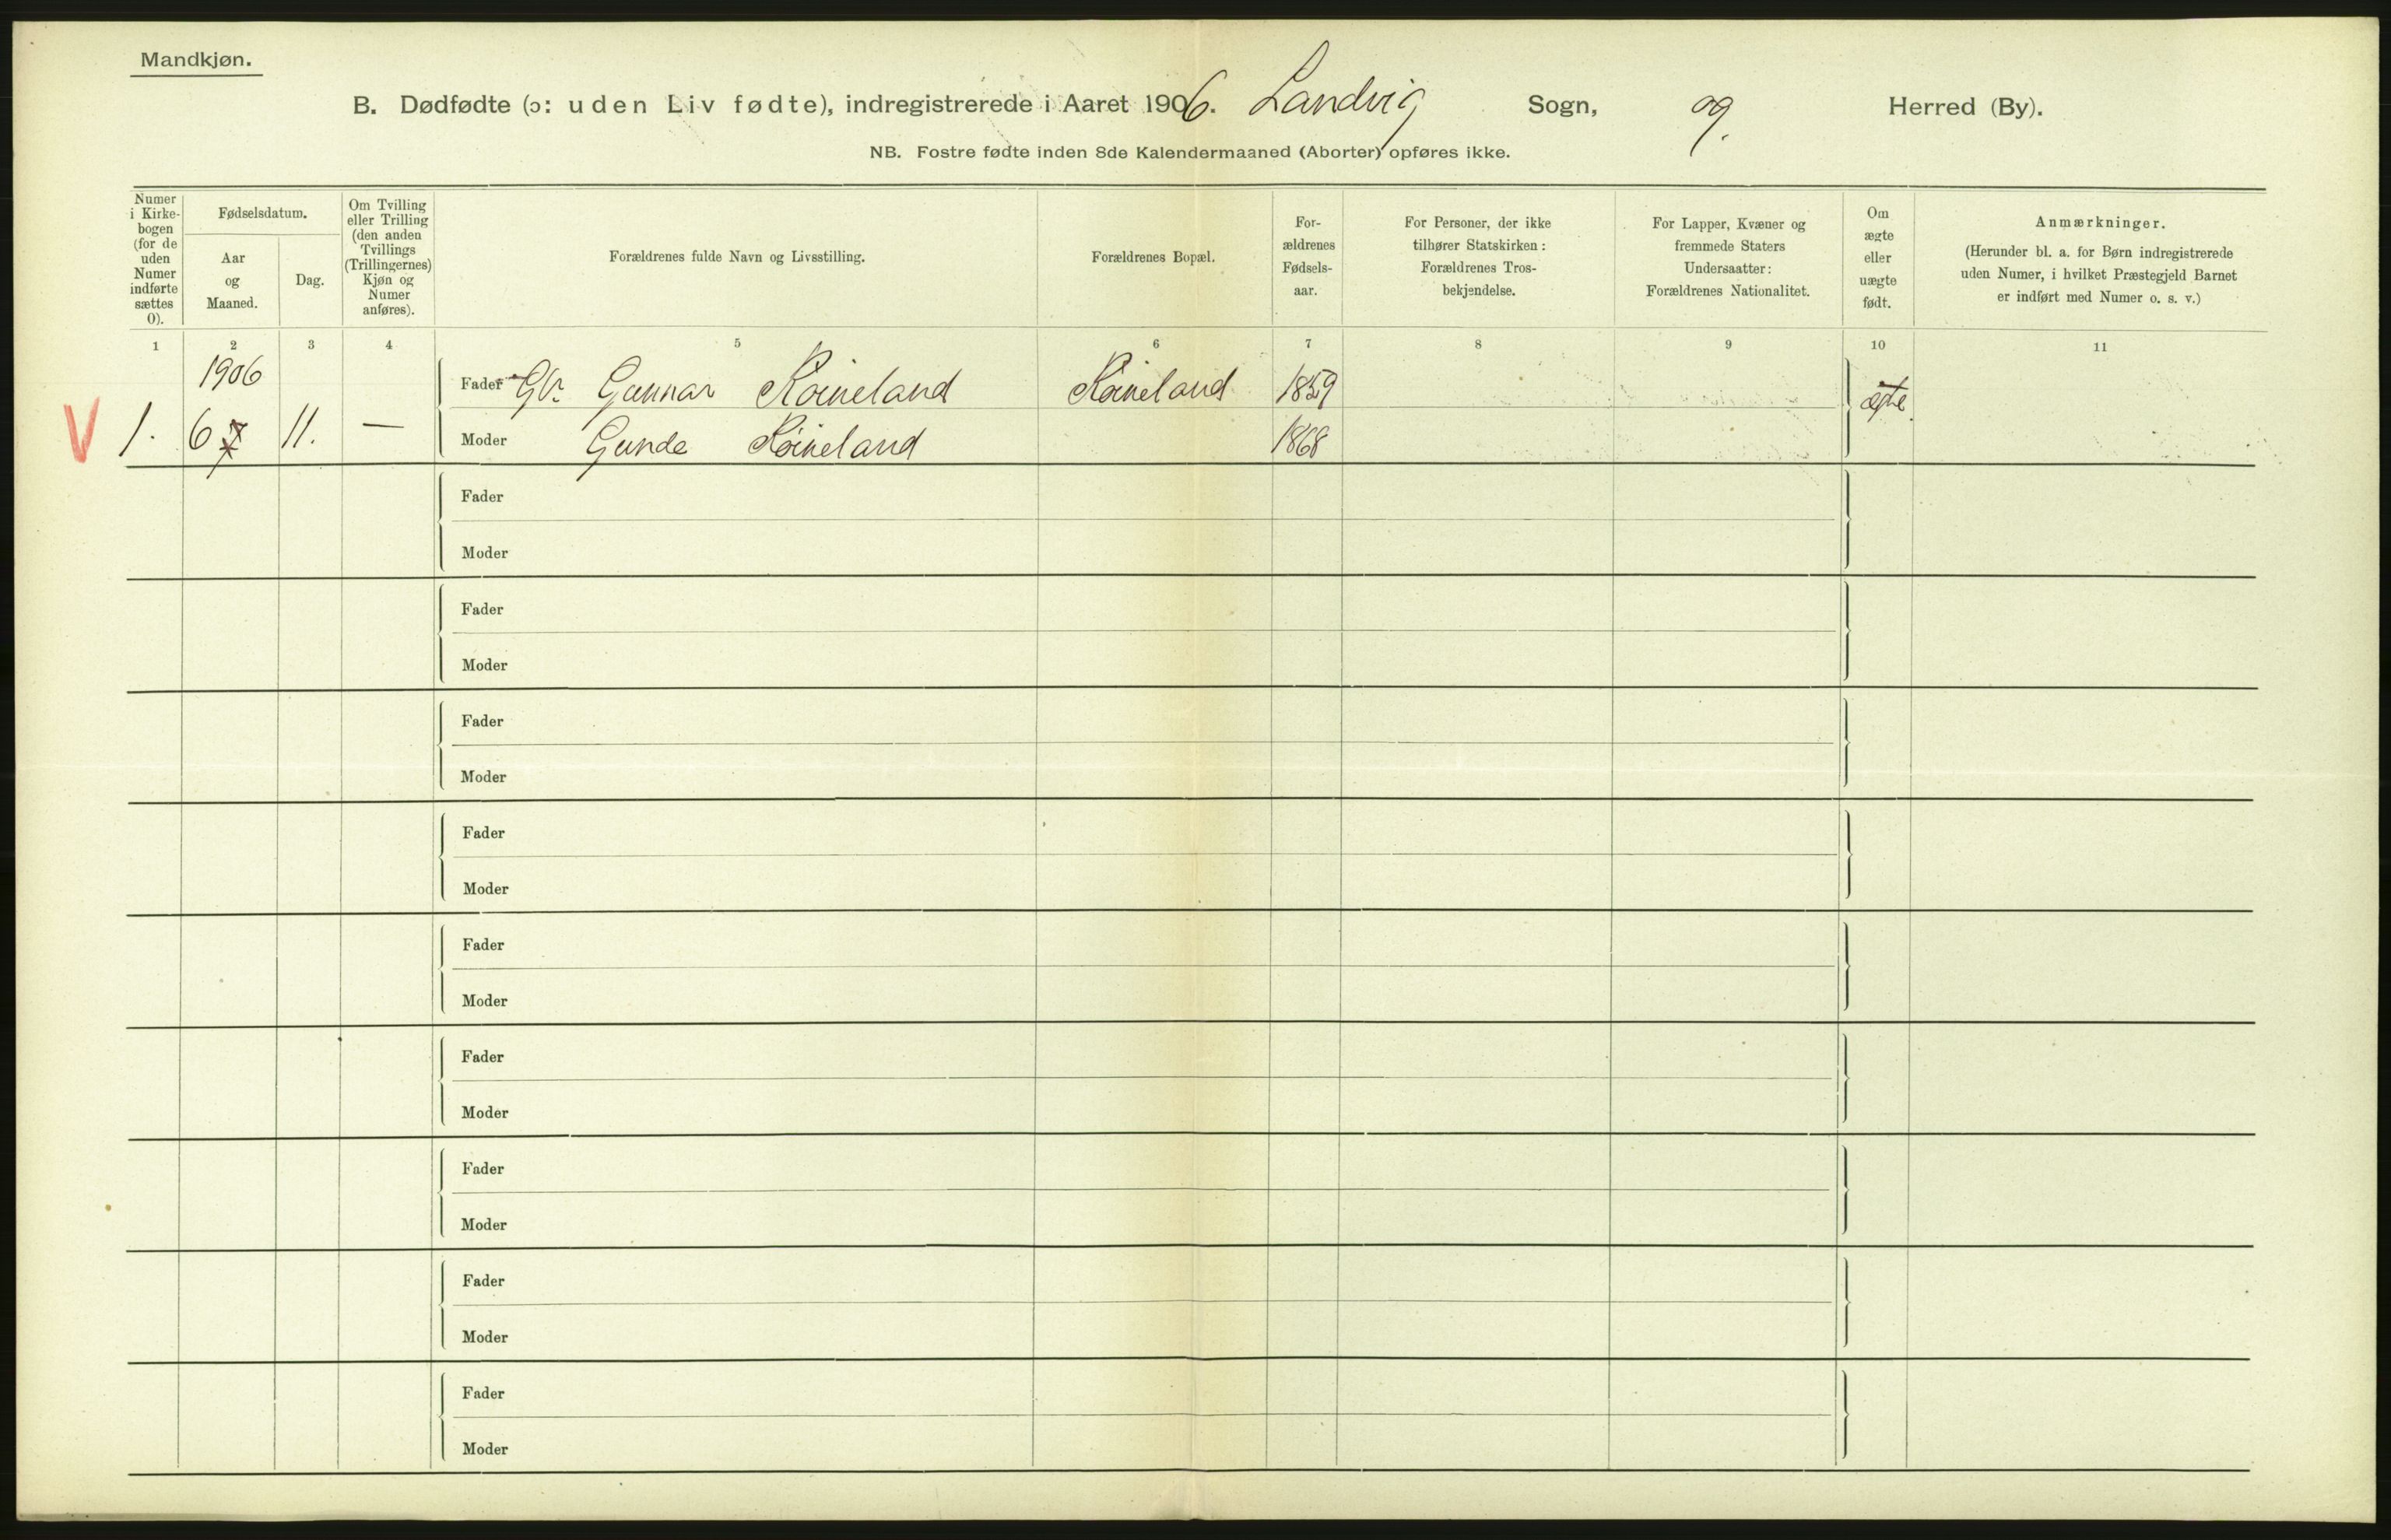 Mandkjøn.
B. Dødfødte (ɔ: uden Liv fødte), indregistrerede i Aaret 1906. Landvig Sogn, og Herred (By).
NB. Fostre fødte inden 8de Kalendermaaned (Aborter) opføres ikke.
Numer
i Kirke-
bogen
(for de
uden
Numer
indførte
sættes
0).
Fødselsdatum.
Aar
og
Maaned.
Dag.
Om Tvilling
eller Trilling
(den anden
Tvillings
(Trillingernes)
Kjøn og
Numer
anføres).
Forældrenes fulde Navn og Livsstilling.
Forældrenes Bopæl.
For-
ældrenes
Fødsels-
aar.
For Personer, der ikke
tilhører Statskirken:
Forældrenes Tros-
bekjendelse.
For Lapper, Kvæner og
fremmede Staters
Undersaatter:
Forældrenes Nationalitet.
Om
ægte
eller
uægte
født.
Anmærkninger.
(Herunder bl. a. for Børn indregistrerede
uden Numer, i hvilket Præstegjeld Barnet
er indført med Numer o. s. v.)
1 2 3 4 5 6 7 8 9 10 11
1906
Fader Gbr. Gunnar Roineland Roineland 1859 ægte
V 1. 6 7 11. — Moder Gunde Roineland 1868
Fader
Moder
Fader
Moder
Fader
Moder
Fader
Moder
Fader
Moder
Fader
Moder
Fader
Moder
Fader
Moder
Fader
Moder